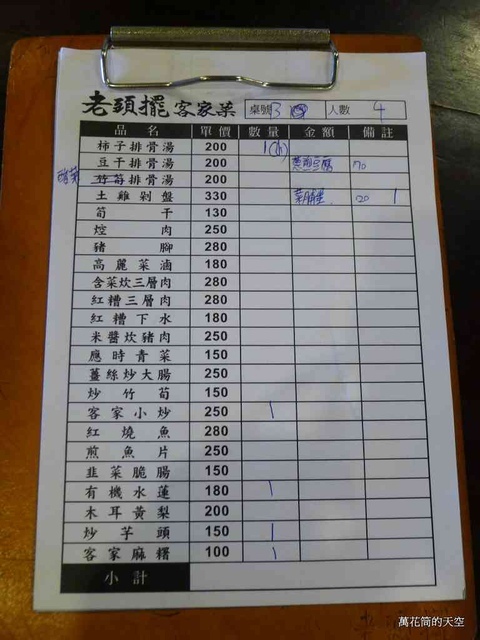 老頭擺客家菜 桌號 3 人數 4
品名 單價 數量 金額 備註
柿子排骨湯 200 1(小)
豆干排骨湯 200 蔥煎豆腐 70
竹筍排骨湯 200
土雞剁盤 330 20 1
筍干 130
焢肉 250
豬腳 280
高麗菜滷 180
含菜炊三層肉 280
紅糟三層肉 280
紅糟下水 180
米醬炊豬肉 250
應時青菜 150
薑絲炒大腸 250
炒竹筍 150
客家小炒 250 1
紅燒魚 280
煎魚片 250
韭菜脆腸 150
有機水蓮 180 1
木耳黃梨 200
炒芋頭 150 1
客家麻糬 100 1
小計
萬花筒的天空